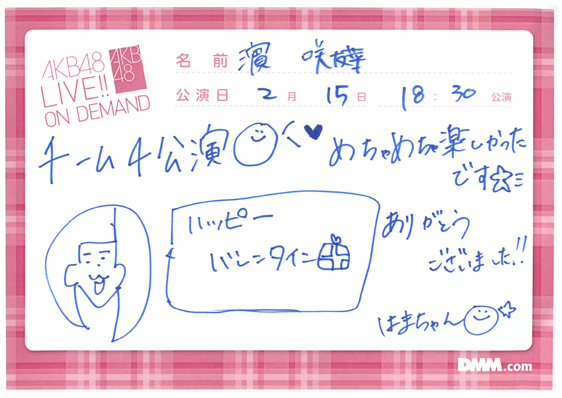 AKB48
LIVE!!
ON DEMAND
AKB
48
名前 濵 咲友菜
公演日 2月 15日 18:30 公演
チーム4公演
めちゃめちゃ楽しかった
です
ハッピー
バレンタイン
ありがとう
ございました!!
はまちゃん
DMM.com